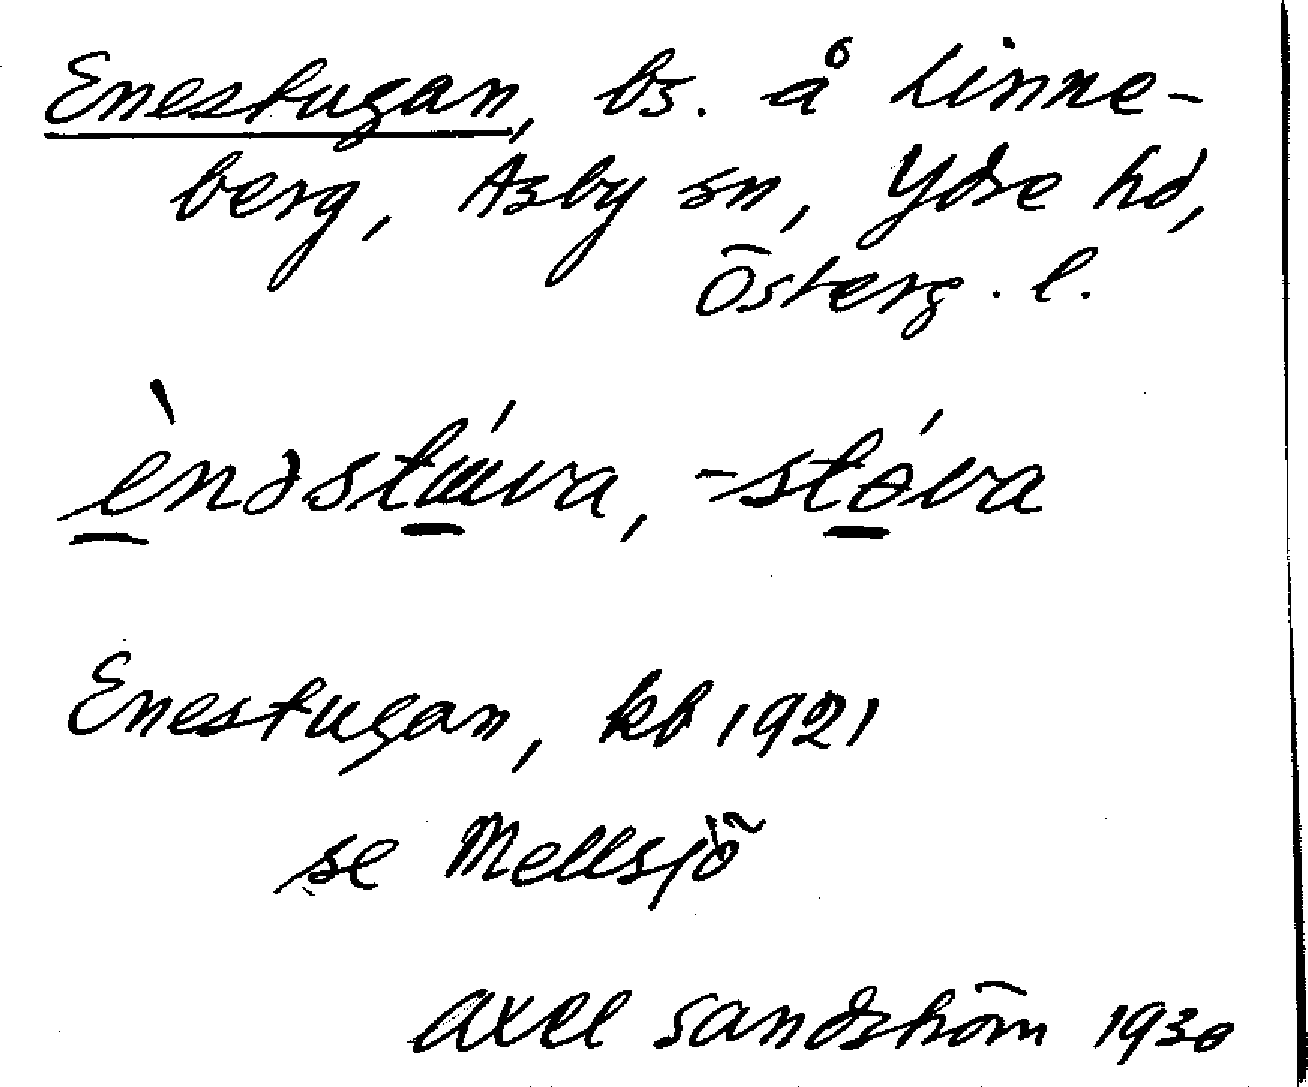 Enestugan, bs. å Linne-
berg, Asby sn, Ydre hd,
Österg. l.
ènəstúva, -stóva
Enestugan, kb 1921
se Mellsjö
Axel Sandström 1930